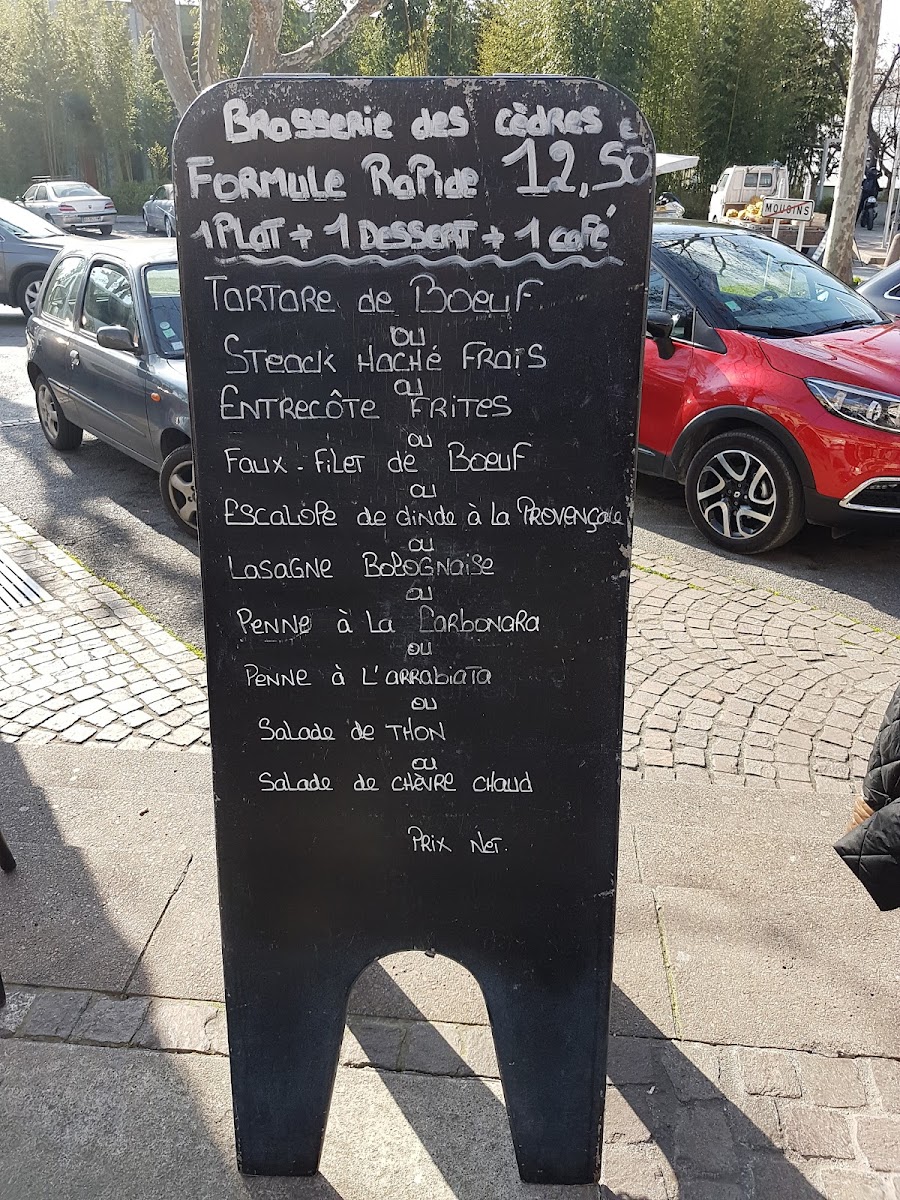 Brasserie des cèdres
FORMULE RaPide 12,50
1 PLaT + 1 DESSERT + 1 café
TARTARE de Boeuf
ou
STEACK HACHÉ FRAIS
ou
ENTRECÔTE FRITES
ou
FAUX-FILET de Boeuf
ou
ESCALOPE de dinde à La PROVENÇale
ou
LASAGNE BOLOGNaiSE
ou
PENNE à La CarbonaRA
ou
PENNE à L'aRRabiaTa
ou
Salade de THON
ou
Salade de CHÈVRE CHaud
PRIX NET.
MOUGINS